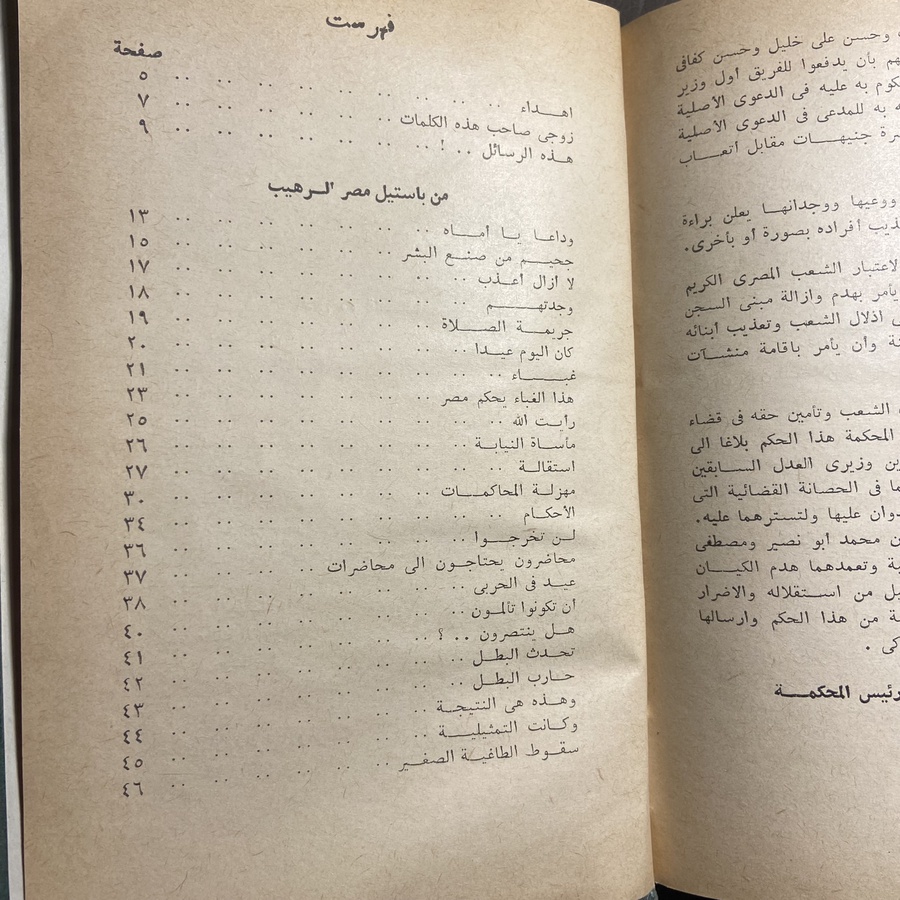 وحسن على خليل وحسن كفافى
بأن يدفعوا للفريق أول وزير
عليه فى الدعوى الأصلية
به للمدعى فى الدعوى الأصلية
جنيهات مقابل اتعاب
ووعيها ووجدانها يعلن براءة
افراده بصورة أو بأخرى.
لاعتبار الشعب المصرى الكريم
يأمر بهدم وازالة مبنى السجن
اذلال الشعب وتعذيب ابنائه
وأن يأمر باقامة منشآت
الشعب وتأمين حقه فى قضاء
المحكمة هذا الحكم بلاغا الى
وزيرى العدل السابقين
فى الحصانة القضائية التى
عليها ولتسترهما عليه.
محمد ابو نصير ومصطفى
وتعمدهما هدم الكيان
من استقلاله والاضرار
من هذا الحكم وارسالها
رئيس المحكمة
فهرست
صفحة
اهداء .. .. .. .. .. .. .. .. ٥
زوجى صاحب هذه الكلمات .. .. .. .. .. ٧
هذه الرسائل .. ! .. .. .. .. .. .. ٩
من باستيل مصر الرهيب
وداعا يا أماه .. .. .. .. .. .. .. ١٣
جحيم من صنع البشر .. .. .. .. .. .. ١٥
لا ازال أعذب .. .. .. .. .. .. .. ١٧
وجدتهم .. .. .. .. .. .. .. ١٨
جريمة الصلاة .. .. .. .. .. .. .. ١٩
كان اليوم عيدا .. .. .. .. .. .. .. ٢٠
غباء .. .. .. .. .. .. .. .. ٢١
هذا الغباء يحكم مصر .. .. .. .. .. .. ٢٣
رأيت الله .. .. .. .. .. .. .. ٢٥
مأساة النيابة .. .. .. .. .. .. .. ٢٦
استقالة .. .. .. .. .. .. .. .. ٢٧
مهزلة المحاكمات .. .. .. .. .. .. .. ٣٠
الأحكام .. .. .. .. .. .. .. .. ٣٤
لن تخرجوا .. .. .. .. .. .. .. ٣٦
محاضرون يحتاجون الى محاضرات .. .. .. .. ٣٧
عيد فى الحربى .. .. .. .. .. .. .. ٣٨
ان تكونوا تألمون .. .. .. .. .. .. .. ٤٠
هل ينتصرون .. ؟ .. .. .. .. .. .. ٤١
تحدث البطل .. .. .. .. .. .. .. ٤٢
حارب البطل .. .. .. .. .. .. .. ٤٣
وهذه هى النتيجة .. .. .. .. .. .. .. ٤٤
وكانت التمثيلية .. .. .. .. .. .. .. ٤٥
سقوط الطاغية الصغير .. .. .. .. .. .. ٤٦